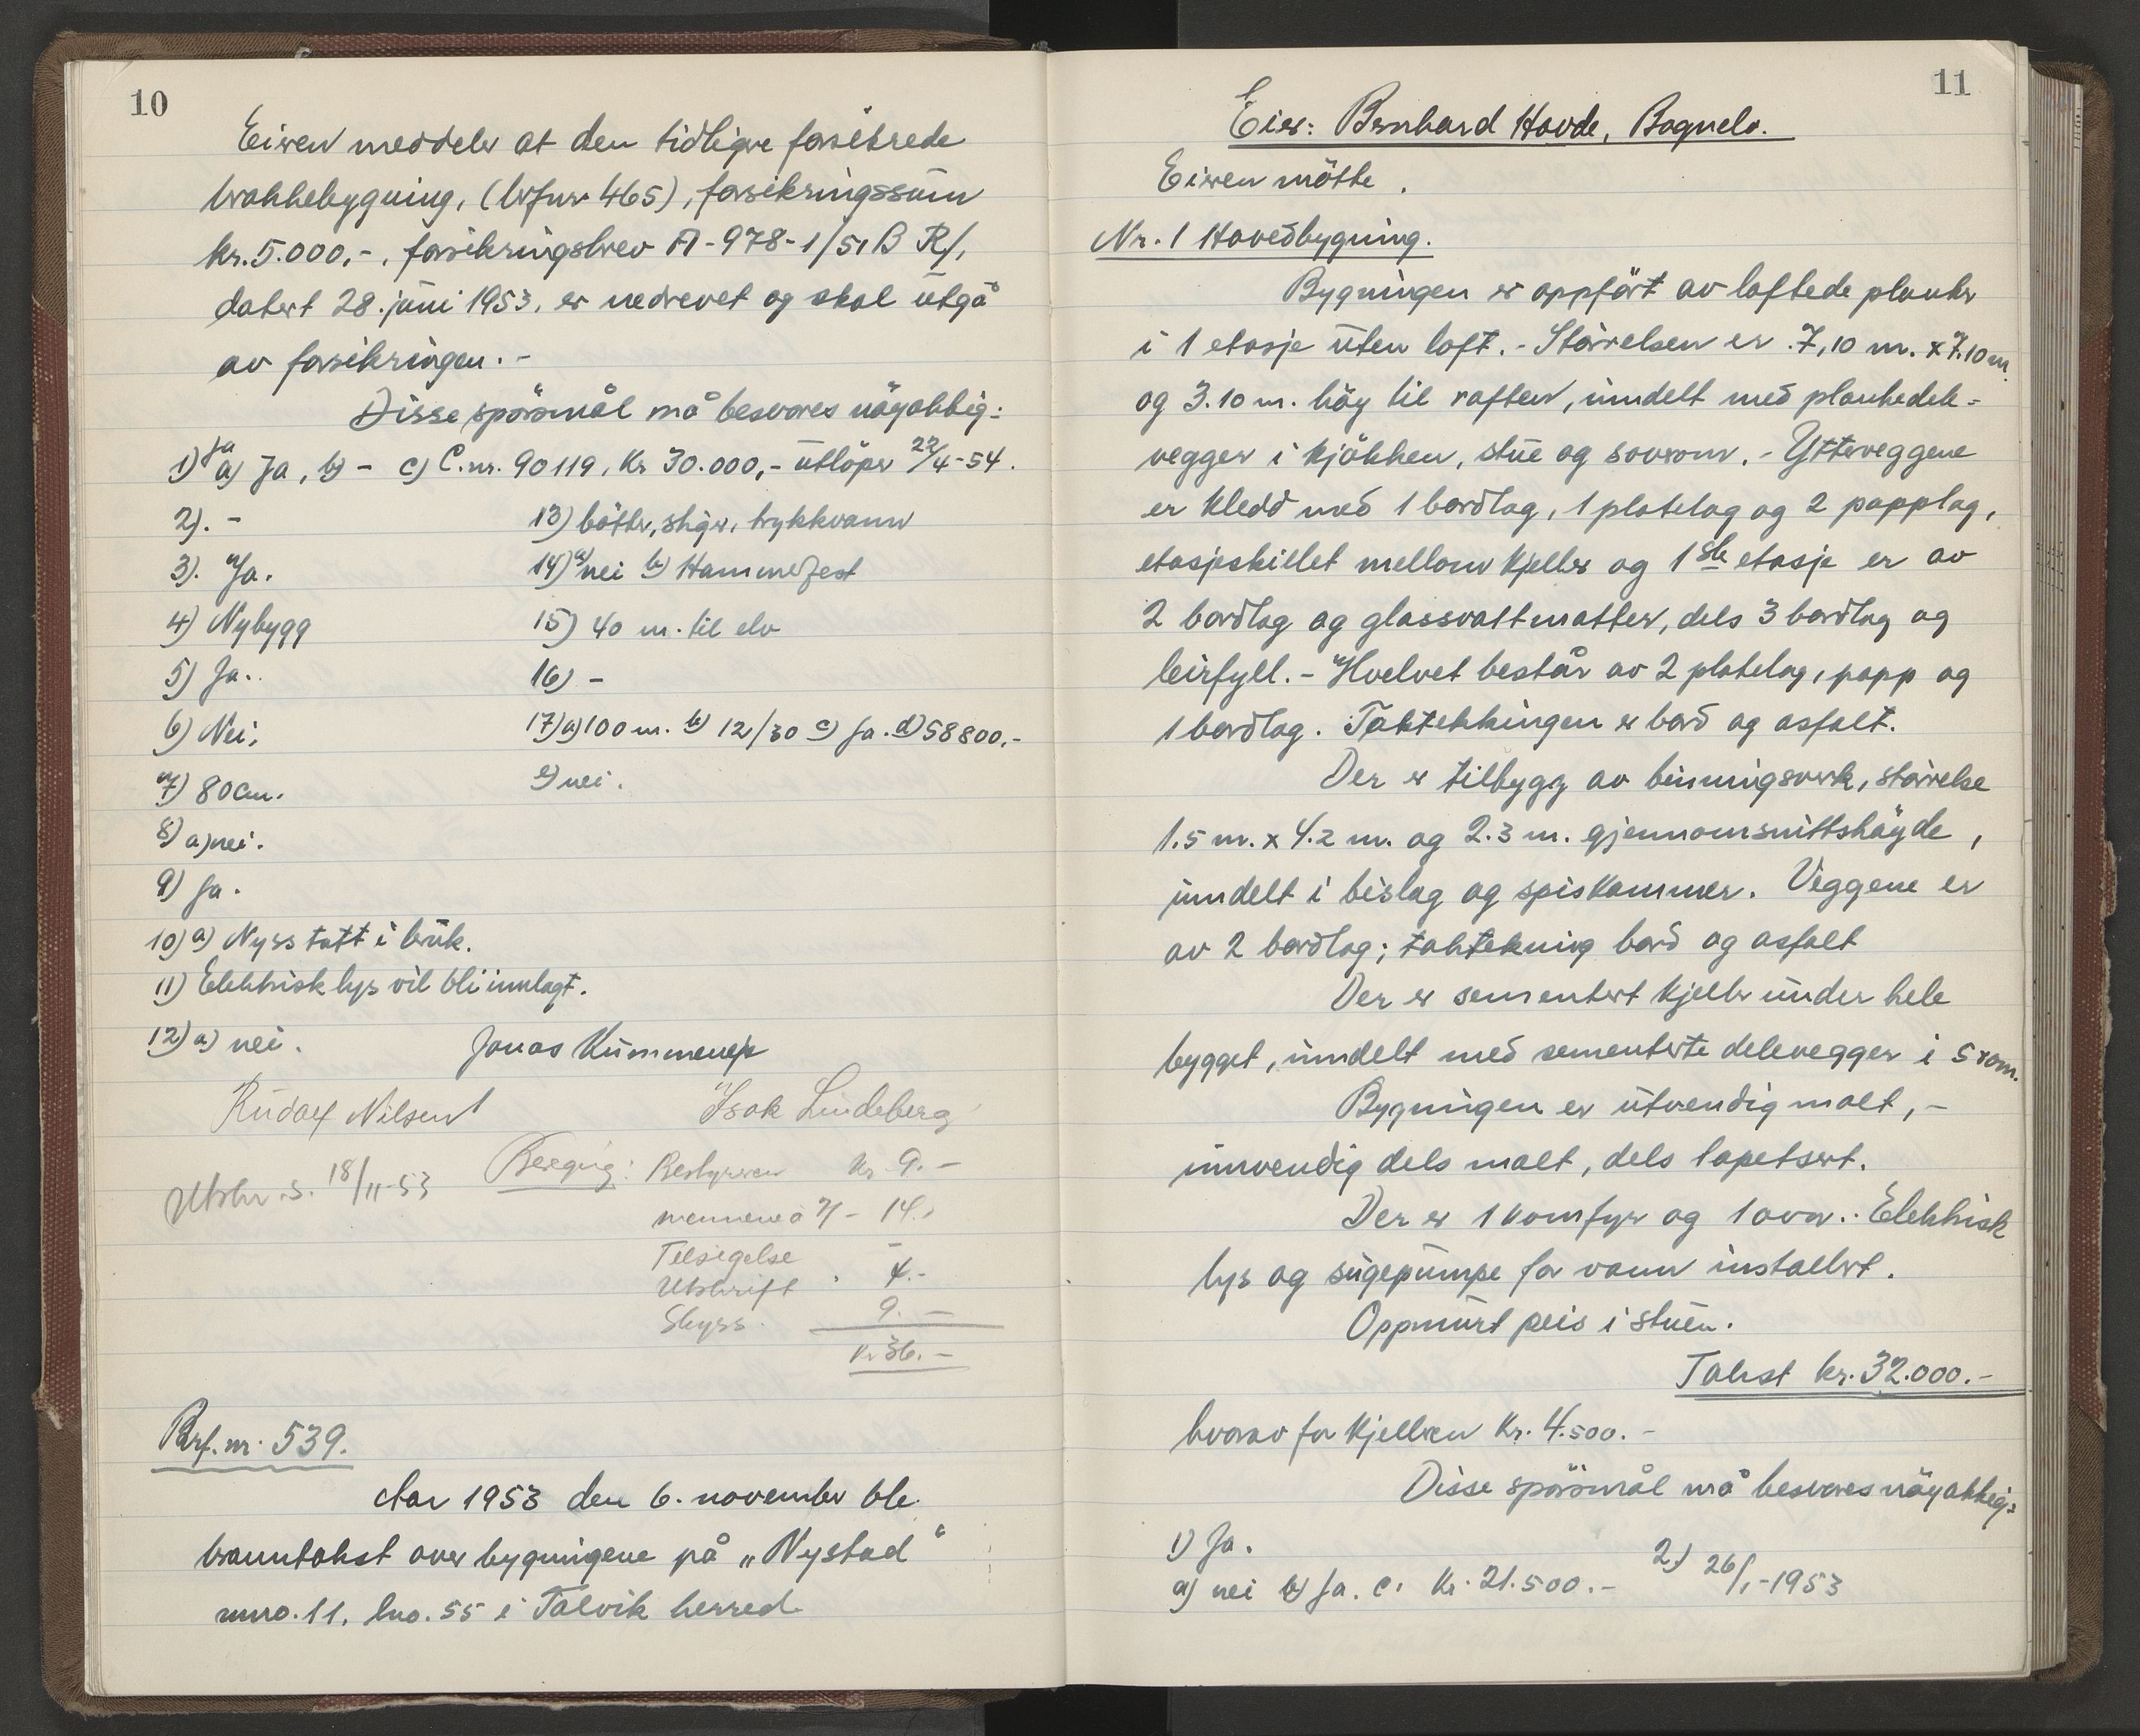 10
Eieren meddeler at den tidligere forsikrede
brakkebygning, (brfnr 465), forsikringssum
kr. 5.000,-, forsikringsbrev A-978-1/51 B R/,
datert 28. juni 1953, er nedrevet og skal utgå
av forsikringen. -
Disse spörsmål må besvares nöyaktig:
1) ja a) Ja, b) - c) C.nr. 90119, Kr 30.000,- utlöper 22/4-54.
2). -
3). Ja.
4) Nybygg
5) Ja.
6) Nei,
7) 80 cm.
8) a) nei.
9) Ja.
10) a) Nyss tatt i bruk.
11) Elektrisk lys vil bli innlagt.
12) a) nei.
13) bötter, stiger, trykkvann
14) a) nei b) Hammerfest
15) 40 m. til elv
16) -
17) a) 100 m. b) 12/30 c) Ja. d) 58800,-
e) nei.
Jonas Kummeneje
Rudolf Nilsen Isak Lindeberg
Utskr. s. 18/11-53
Beregng: Bestyreren kr 9.-
mennene à 7/- 14.-
Tilsigelse -
Utskrift 4.-
Skyss. 9.-
kr 36.-
Brf. nr. 539.
Aar 1953 den 6. november ble
branntakst over bygningene på „Nystad"
mno. 11, bno. 55 i Talvik herred
11
Eier: Bernhard Hovde, Bognelv.
Eieren mötte.
Nr. 1 Hovedbygning.
Bygningen er oppfört av loftede planker
i 1 etasje uten loft. - Störrelsen er 7,10 m. x 7.10 m.
og 3.10 m. höy til raften, inndelt med plankedele-
vegger i kjökken, stue og soverom. - Ytterveggene
er kledd med 1 bordlag, 1 platelag og 2 papplag,
etasjeskillet mellom kjeller og 1ste etasje er av
2 bordlag og glassvattmatter, dels 3 bordlag og
leirfyll. - Hvelvet består av 2 platelag, papp og
1 bordlag. Taktekkingen er bord og asfalt.
Der er tilbygg av binningsverk, störrelse
1.5 m. x 4.2 m. og 2.3 m. gjennomsnittshöyde,
inndelt i bislag og spiskammer. Veggene er
av 2 bordlag; taktekning bord og asfalt
Der er sementert kjeller under hele
bygget, inndelt med sementerte delevegger i 5 rom.
Bygningen er utvendig malt, -
innvendig dels malt, dels tapetsert.
Der er 1 komfyr og 1 ovn. Elektrisk
lys og sugepumpe for vann installert.
Oppmurt peis i stuen.
Takst kr. 32.000.-
hvorav for kjelleren Kr. 4.500.-
Disse spörsmål må besvares nöyaktig:
1) Ja.
a) nei b) Ja. c. Kr. 21.500.- 2.) 26/1-1953